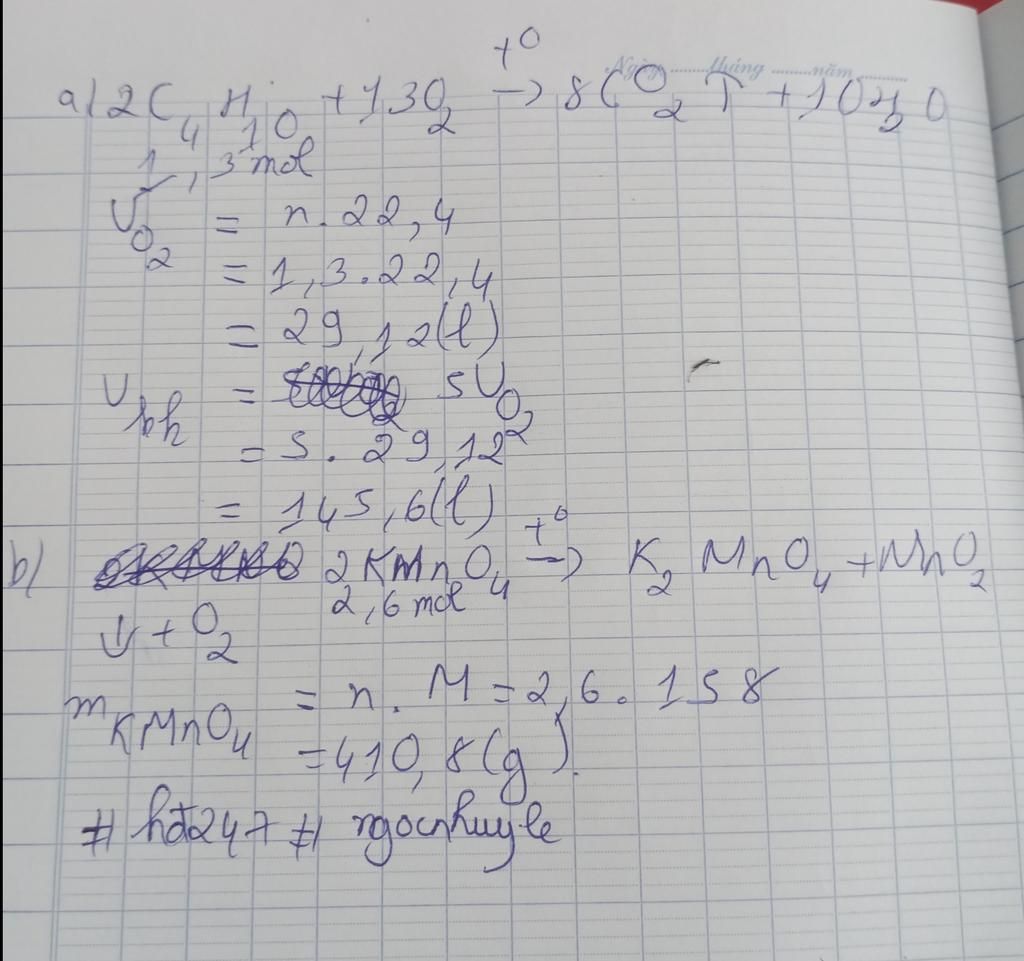 Ngày ........ tháng ........ năm ........
a) 2C₄H₁₀ + 13O₂ →(t⁰) 8CO₂ ↑ + 10H₂O
1,3 mol
V_O₂ = n.22,4
= 1,3.22,4
= 29,12(l)
V_kk = 5V_O₂
= 5.29,12
= 145,6(l)
b) 2KMnO₄ →(t⁰) K₂MnO₄ + MnO₂
2,6 mol
↓ + O₂
m_KMnO₄ = n.M = 2,6.158
= 410,8(g).
# hđ247 # ngocnhuyle